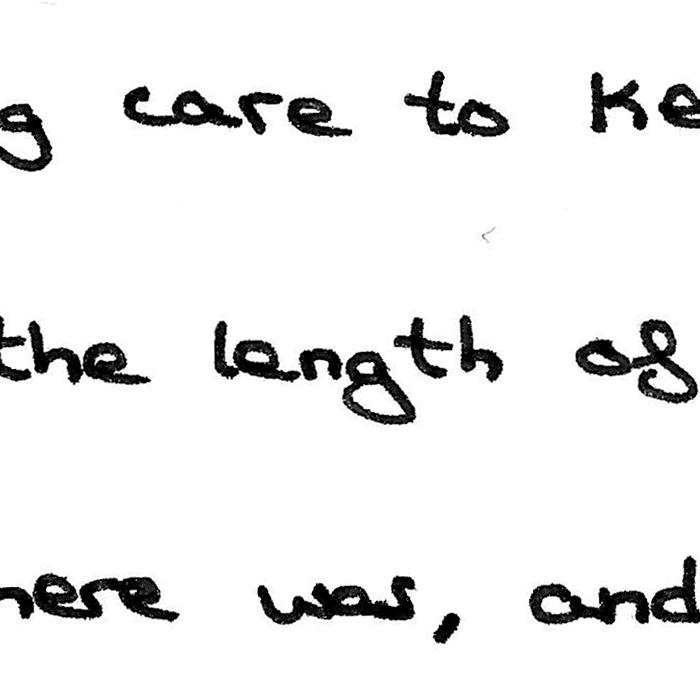 g care to ke
the length of
here was, and